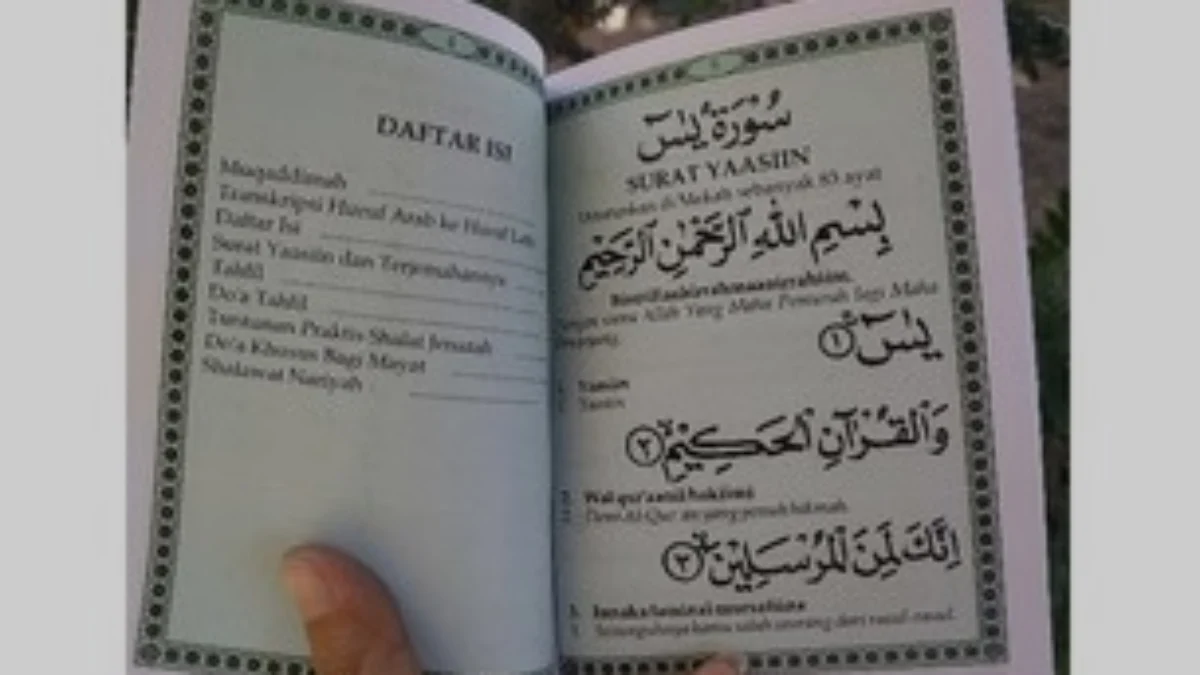 DAFTAR ISI
Muqaddimah
Transkripsi Huruf Arab ke Huruf Latin
Daftar Isi
Surat Yaasiin dan Terjemahannya
Tahlil
Do'a Tahlil
Tuntunan Praktis Shalat Jenazah
Do'a Khusus Bagi Mayat
Shalawat Nariyah
سُوْرَةُ يٰسٓ
SURAT YAASIIN
Diturunkan di Mekah sebanyak 83 ayat
بِسْمِ اللّٰهِ الرَّحْمٰنِ الرَّحِيْمِ
Bismillaahirrahmaanirrahiim.
Dengan nama Allah Yang Maha Pemurah lagi Maha
Penyayang.
يٰسٓ ۚ ﴿١﴾
1. Yaasiin
1. Yaasiin
وَالْقُرْاٰنِ الْحَكِيْمِ ۙ ﴿٢﴾
2. Wal qur'aanil hakiimi
2. Demi Al-Qur'an yang penuh hikmah.
اِنَّكَ لَمِنَ الْمُرْسَلِيْنَ ۙ ﴿٣﴾
3. Innaka laminal mursaliina
3. Sesungguhnya kamu salah seorang dari rasul-rasul.